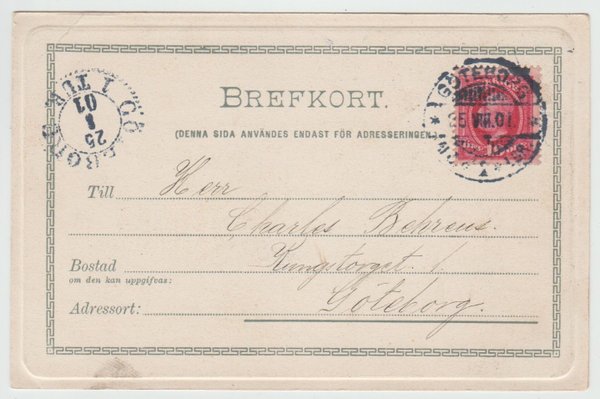 BREFKORT.
(DENNA SIDA ANVÄNDES ENDAST FÖR ADRESSERINGEN
GÖTEBORG
25 VIII.01
25
8
01
Till Herr
Charles Behrens.
Bostad Kungstorget 1
om den kan uppgifvas:
Adressort: Göteborg.